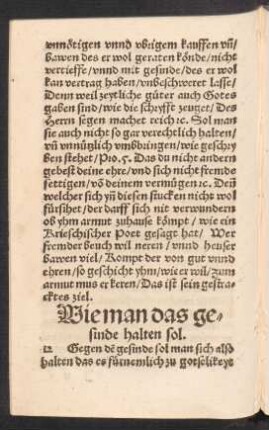 vnnötigen vnnd vbrigem kauffen vñ/
bawen des er wol geraten könde/nicht
vertieffe/vnnd mit gesinde/des er wol
kan vertrag haben/vnbeschweret lasse/
Denn weil zeytliche güter auch Gotes
gaben sind/wie die schryfft zeuget/Des
Herrn segen machet reich ꝛc. Sol man
sie auch nicht so gar verechtlich halten/
vñ vnnützlich vmbbringen/wie geschry
ben stehet/Pro.5. Das du nicht andern
gebest deine ehre/vnd sich nicht fremde
settigen/vō deinem vermügen ꝛc. Deñ
welcher sich yñ diesen stucken nicht wol
fürsihet/der darff sich nit verwundern
ob yhm armut zuhause kömpt/wie ein
Krieschischer Poet gesagt hat/Wer
fremder beuch wil neren/vnnd heuser
bawen viel/Kompt der von gut vnnd
ehren/so geschicht yhm/wie er wil/zum
armut mus er keren/Das ist sein gestra-
cktes ziel.
Wie man das ge-
sinde halten sol.
Gegen dē gesinde sol man sich also
halten das es fürnemlich zu gotselikeyt